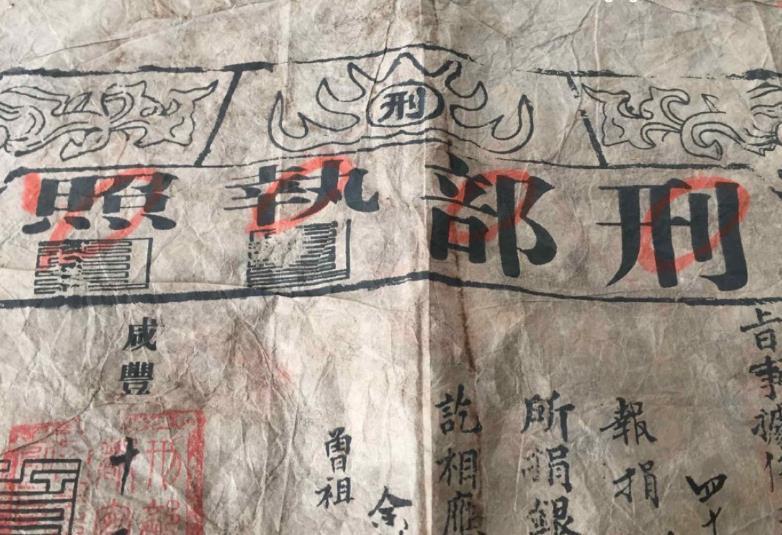 刑
刑部執照
旨事
四十
報捐
所捐銀
訖相應
余
曾祖
咸豐十